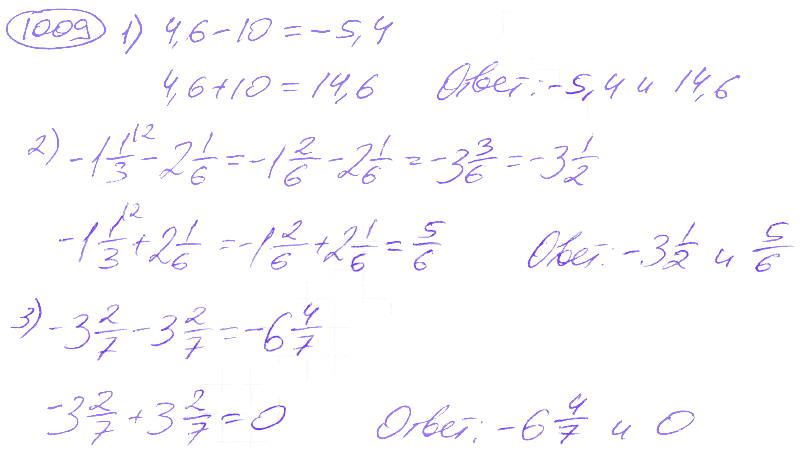 1009 1) 4,6 - 10 = -5,4
4,6 + 10 = 14,6 Ответ: -5,4 и 14,6
2) -1 1/3 ^(2 - 2 1/6 = -1 2/6 - 2 1/6 = -3 3/6 = -3 1/2
-1 1/3 ^(2 + 2 1/6 = -1 2/6 + 2 1/6 = 5/6 Ответ: -3 1/2 и 5/6
3) -3 2/7 - 3 2/7 = -6 4/7
-3 2/7 + 3 2/7 = 0 Ответ: -6 4/7 и 0